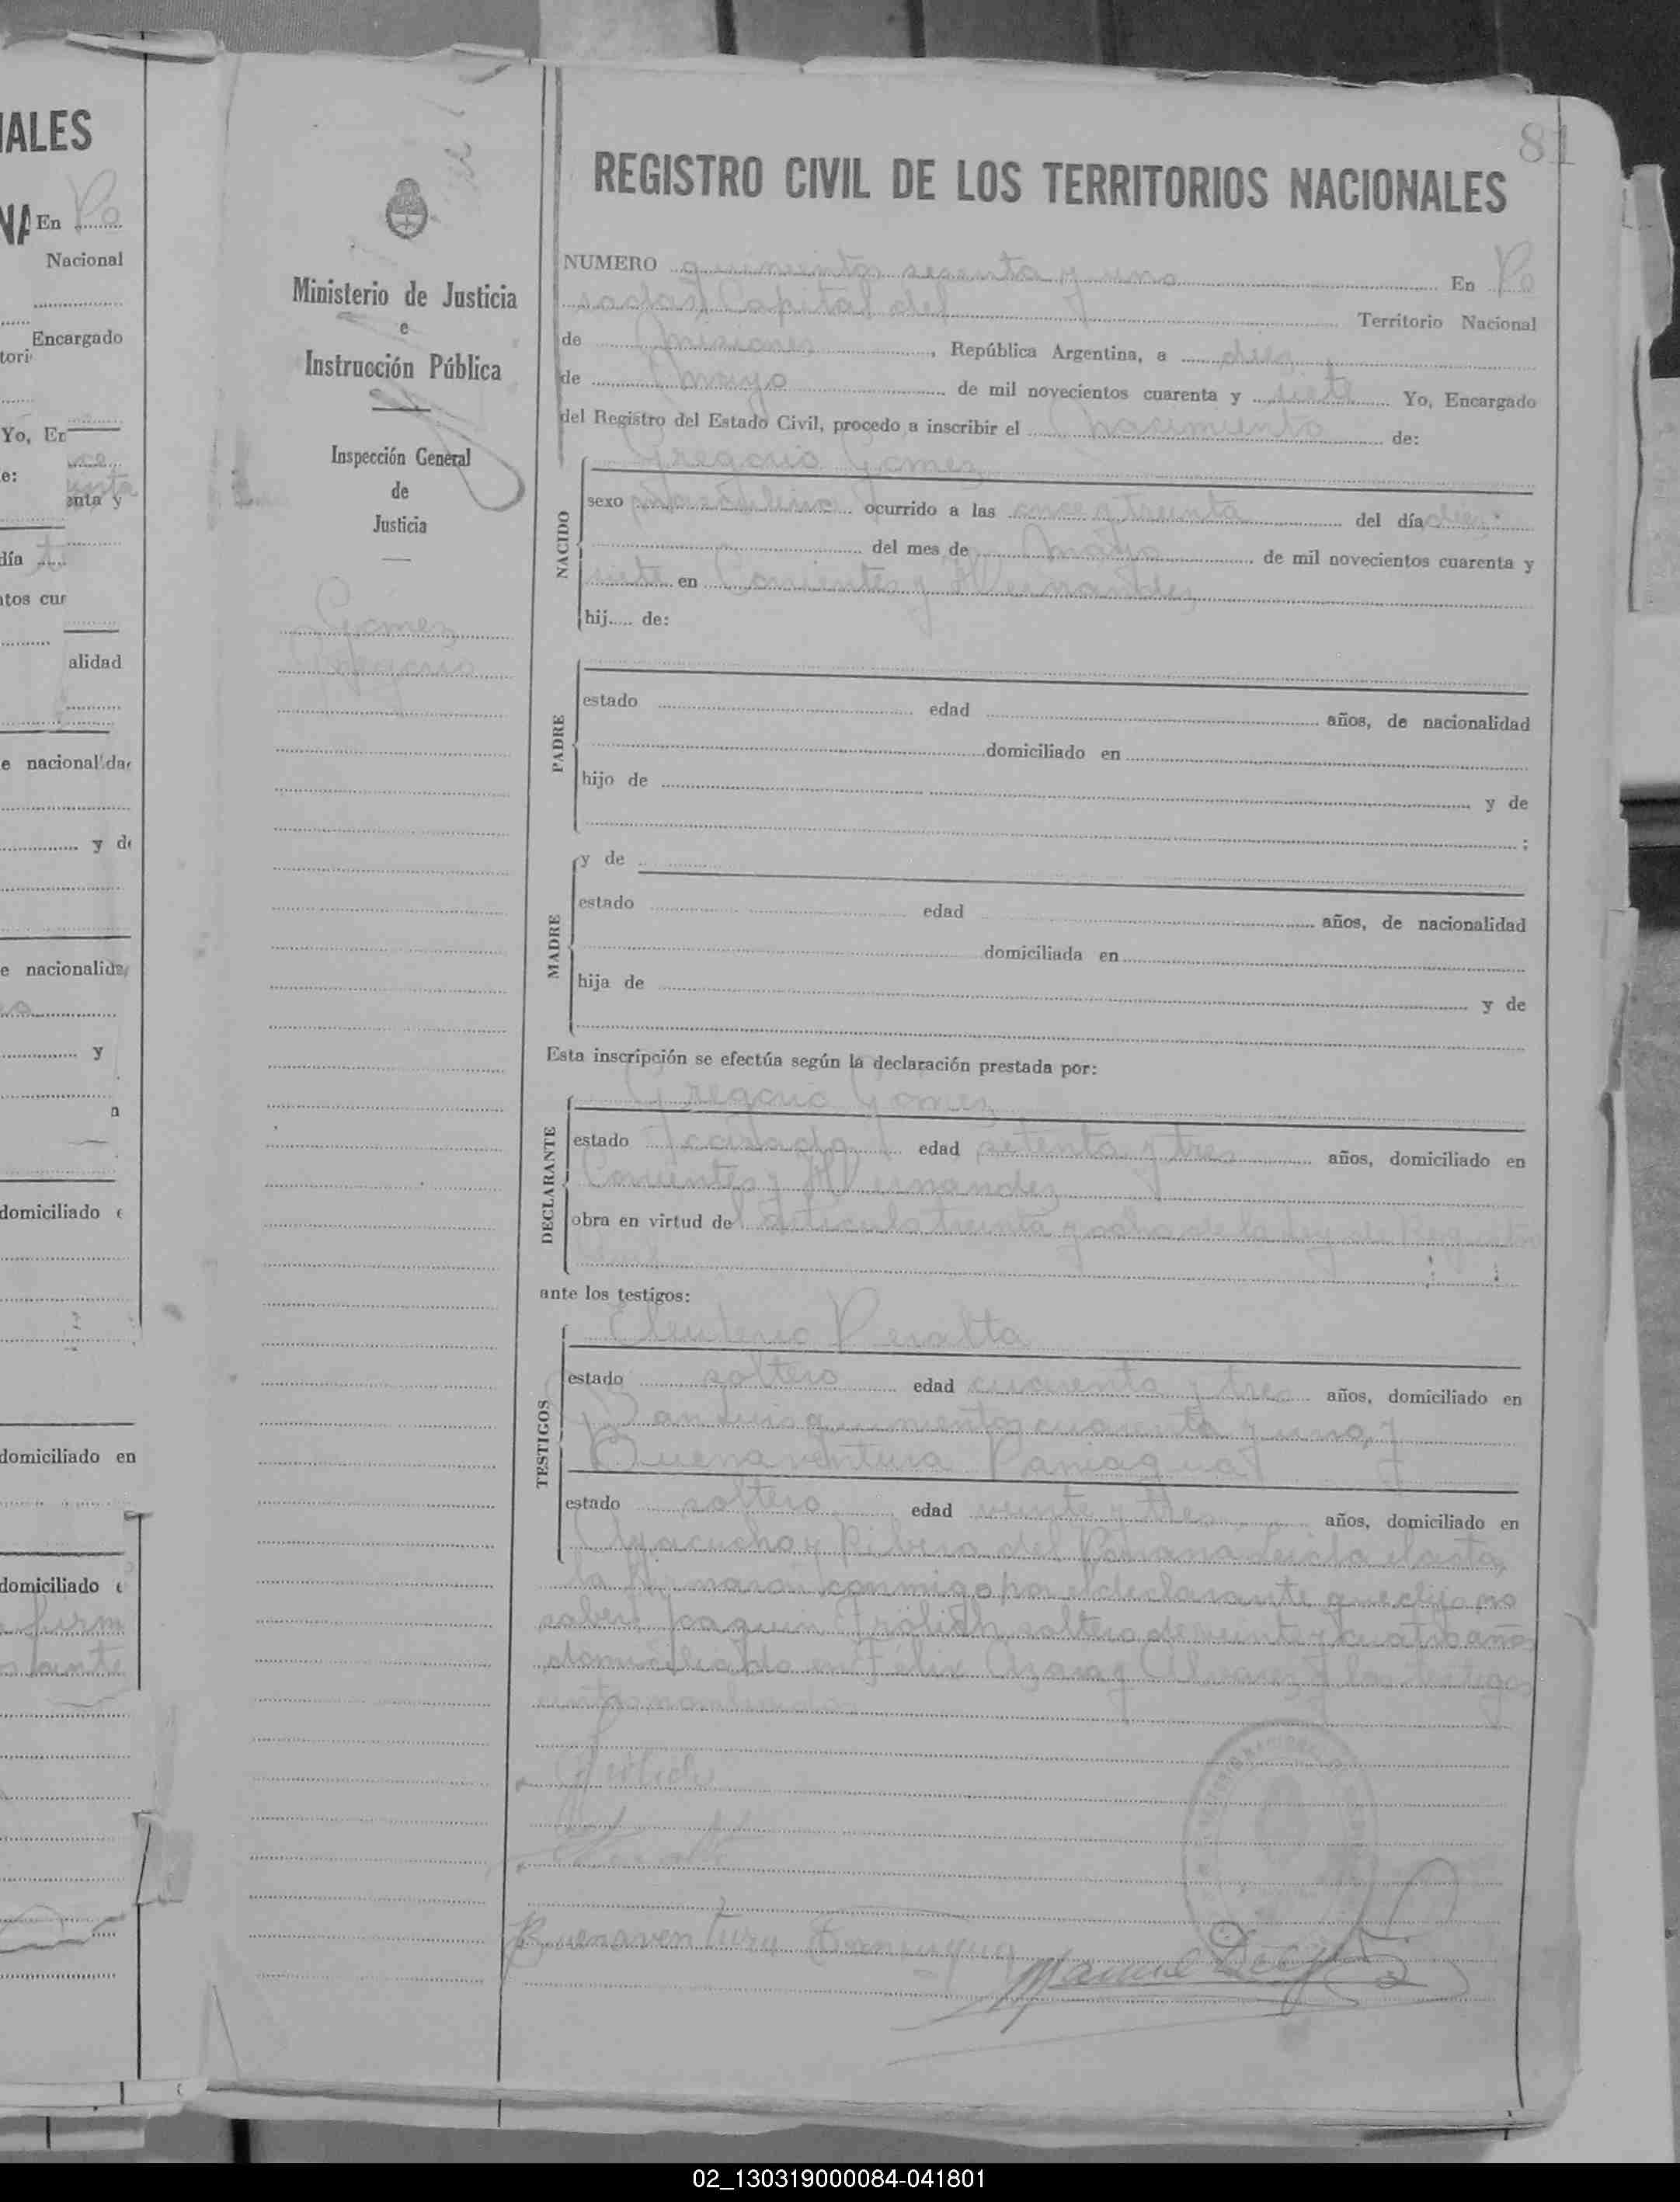 IALES
NA En Po
Nacional
Encargado
tori
Yo, En
e:
enta y
día
tos cur
alidad
e nacional da
y de
e nacionalida
y
a
domiciliado e
domiciliado en
domiciliado e
firm
81
REGISTRO CIVIL DE LOS TERRITORIOS NACIONALES
Ministerio de Justicia
e
Instrucción Pública
Inspección General
de
Justicia
Gomez
Gregorio
NUMERO quinientos sesenta y uno En Po
sadas, Capital del Territorio Nacional
de Misiones, República Argentina, a diez
de Mayo de mil novecientos cuarenta y siete Yo, Encargado
del Registro del Estado Civil, procedo a inscribir el Nacimiento de:
NACIDO
Gregorio Gomez
sexo masculino ocurrido a las once y treinta del día diez
del mes de Mayo de mil novecientos cuarenta y
siete en Corrientes y Hernandez
hij.... de:
PADRE
estado edad años, de nacionalidad
domiciliado en
hijo de y de
;
MADRE
y de
estado edad años, de nacionalidad
domiciliada en
hija de y de
Esta inscripción se efectúa según la declaración prestada por:
DECLARANTE
Gregorio Gomez
estado casado edad setenta y tres años, domiciliado en
Corrientes y Hernandez
obra en virtud del articulo treinta y ocho de la ley de Registro
ante los testigos:
TESTIGOS
Eleuterio Peralta
estado soltero edad cuarenta y tres años, domiciliado en
San Luis quinientos cuarenta y uno, y
Buenaventura Paniagua
estado soltero edad veinte y tres años, domiciliado en
Ayacucho y Ribera del Parana Leida el acta,
la firmaron conmigo por el declarante que dijo no
saber, Joaquin Frölich soltero de veinte y cuatro años
domiciliado en Felix Azara y Alvarez y los testigos
Frölich
Peralta
Buenaventura Paniagua
02_130319000084-041801